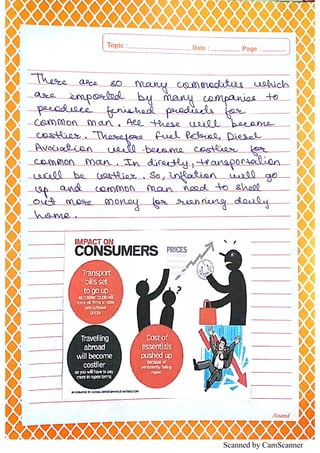 Topic : Date : Page :
There are so many commodities which
are imported by many companies to
peroduce finished products for
common man. All these will become
costlier. Therefore fuel Petrol, Diesel
Avociation will become costlier for
common man. In directly, transportation
will be costlier. So, inflation will go
up and common man need to shell
out more money for running daily
home.
IMPACT ON
CONSUMERS
PRICES
Transport
bills set
to go up
Travelling
abroad
will become
costlier
as you will have to pay
more in rupee terms
Cost of
essentials
pushed up
because of
persistently falling
rupee
?
Anand
Scanned by CamScanner